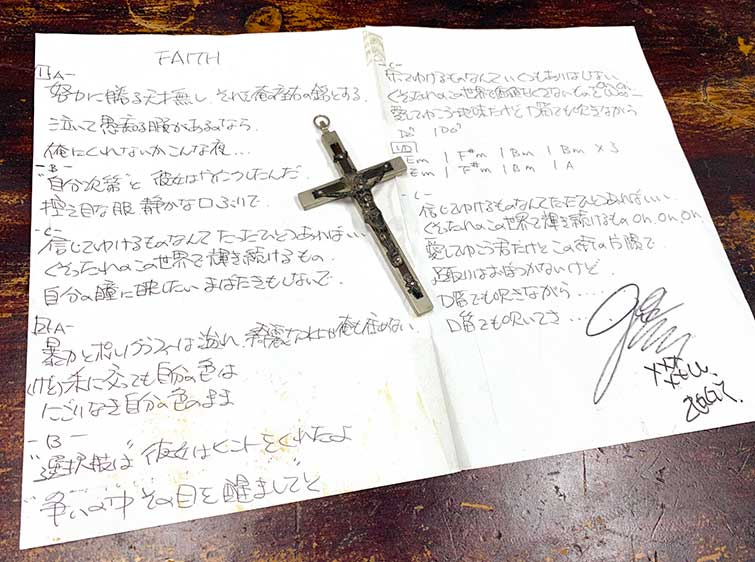 FAITH
1 A-
努力に勝る天才無し それを俺の座右の銘とする
泣いて愚痴る暇があるなら
俺にくれないかこんな夜...
-B-
"自分次第"と 彼女は したんだ
控え目な服 静かな口ぶりで
-C-
信じてゆけるものなんて たったひとつあればいい
くそったれのこの世界で輝き続けるもの
自分の瞳に映したい まばたきもしないで
2 A-
暴力とポルノグラフィーは溢れ 綺麗な 俺も
(けど)朱に交っても自分の色は
にごりなき自分の色のまま
-B-
"選択肢は" 彼女はヒントをくれたよ
"争いの中 その目を醒まして"と
-C-
てゆけるものなんて いくつもありはしない
くそったれのこの世界で
愛してゆこう 地味だけど 口笛でも吹きながら
Em | F#m | Bm | Bm × 3
Em | F#m | Bm | A
-C-
信じてゆけるものなんて ただひとつあればいい
くそったれのこの世界で輝き続けるもの Oh, Oh, Oh,
愛してゆこう君だけと この街の片隅で
足取りはおぼつかないけど
口笛でも吹きながら....
口笛でも吹いてさ....